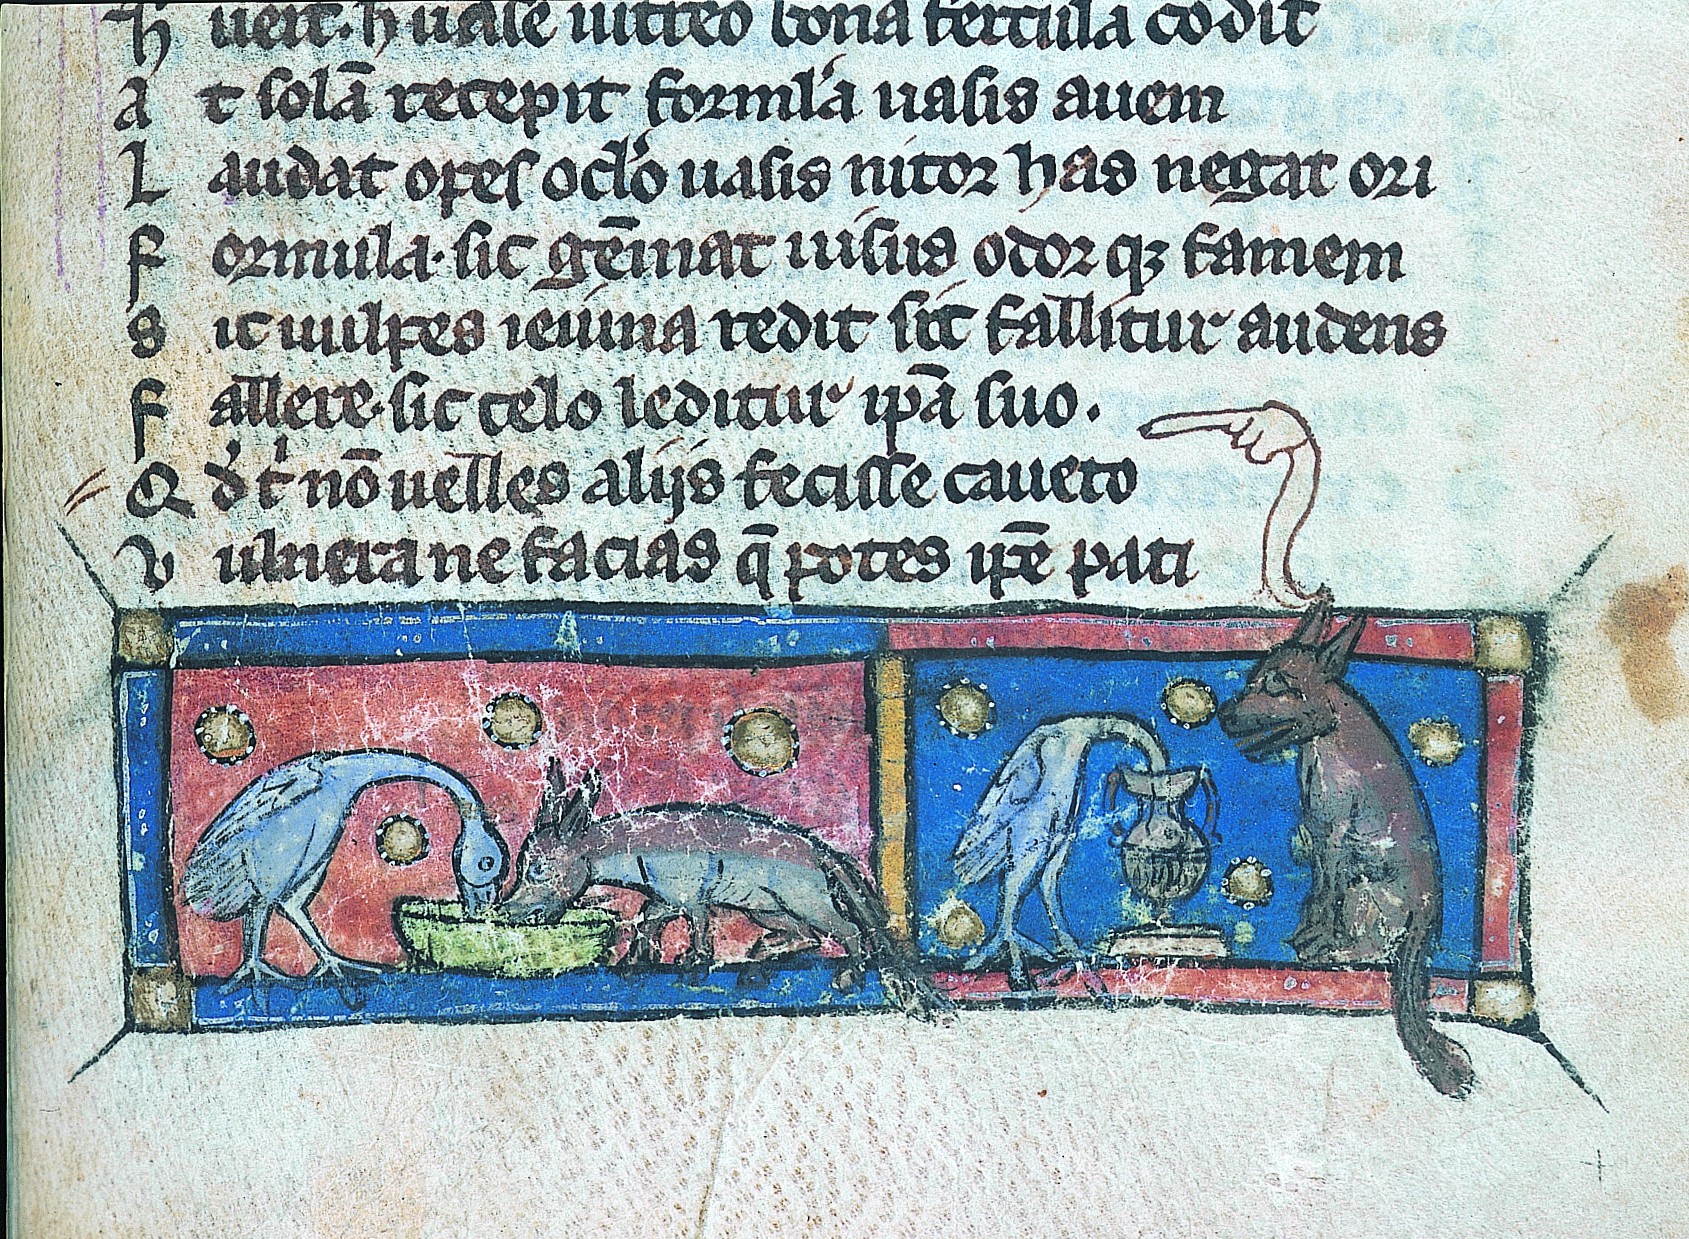 h uert. h uase uitreo bona fercula codit
a t solā recepit formla uasis auem
L audat opes oclo uasis nitor has negat ori
f ormula. sic gēinat uisus odor qꝫ famem
s ic uulpes ieiuna redit sic fallitur audens
f allere. sic telo leditur ipā suo.
Q d t nō uelles aliis fecisse caueto
v ulnera ne facias q̄ potes ipē pati